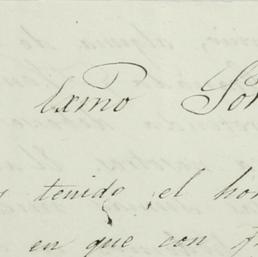 Exmo Sor
tenido el hon
en que con